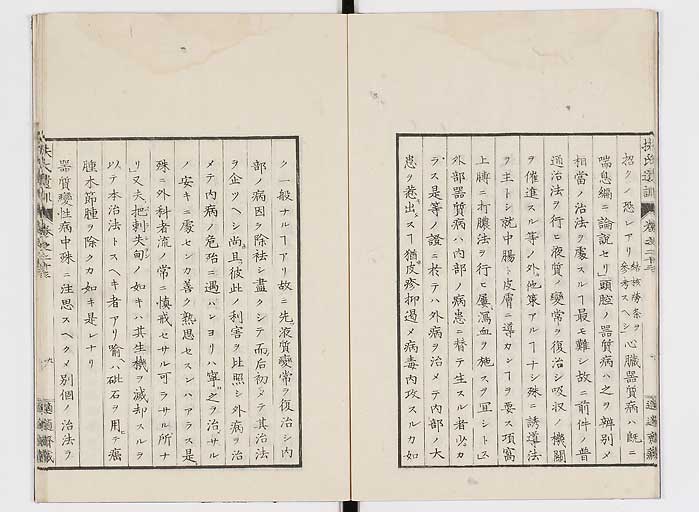 招クノ恐レアリ 結核癆条ヲ参考スヘシ 心臓器質病ハ既ニ
喘息編ニ論説セリ」頭腔ノ器質病ハ之ヲ辨别メ
相當ノ治法ヲ處スルヿ最モ難シ故ニ前件ノ普
通治法ヲ行ヒ液質ノ變常ヲ復治シ吸収ノ機關
ヲ催進スル等ノ外他策アルヿナシ殊ニ誘導法
ヲ主トシ就中腸ト皮膚ニ導カンヿヲ要ス項窩
上膊ニ打膿法ヲ行ヒ屢瀉血ヲ施スヲ宜シトス」
外部器質病ハ内部ノ病患ニ替テ生スル者少カ
ラス是等ノ證ニ於テハ外病ヲ治メテ内部ノ大
患ヲ惹出スヿ猶皮疹抑遏メ病毒内攻スルカ如
ク一般ナルヿアリ故ニ先液質變常ヲ復治シ内
部ノ病因ヲ除祛シ盡クシテ而后初メテ其治法
ヲ企ツヘシ尚且彼此ノ利害ヲ比照シ外病ヲ治
メテ内病ノ危殆ニ遇ハンヨリハ寧之ヲ治セサル
ノ安キニ處センカ善ク熟思セスンハアラス是
殊ニ外科者流ノ常ニ慎戒セサル可ラサル所ナ
リ」又夫把刺失旬ノ如キハ其生機ヲ滅却スルヲ
以テ本治法トスヘキ者アリ喩ハ砒石ヲ用テ癌
腫水節腫ヲ除クカ如キ是レナリ
器質變性病中殊ニ注思スヘクメ別個ノ治法ヲ
扶氏遺訓
卷之二十三
九
適適齋藏